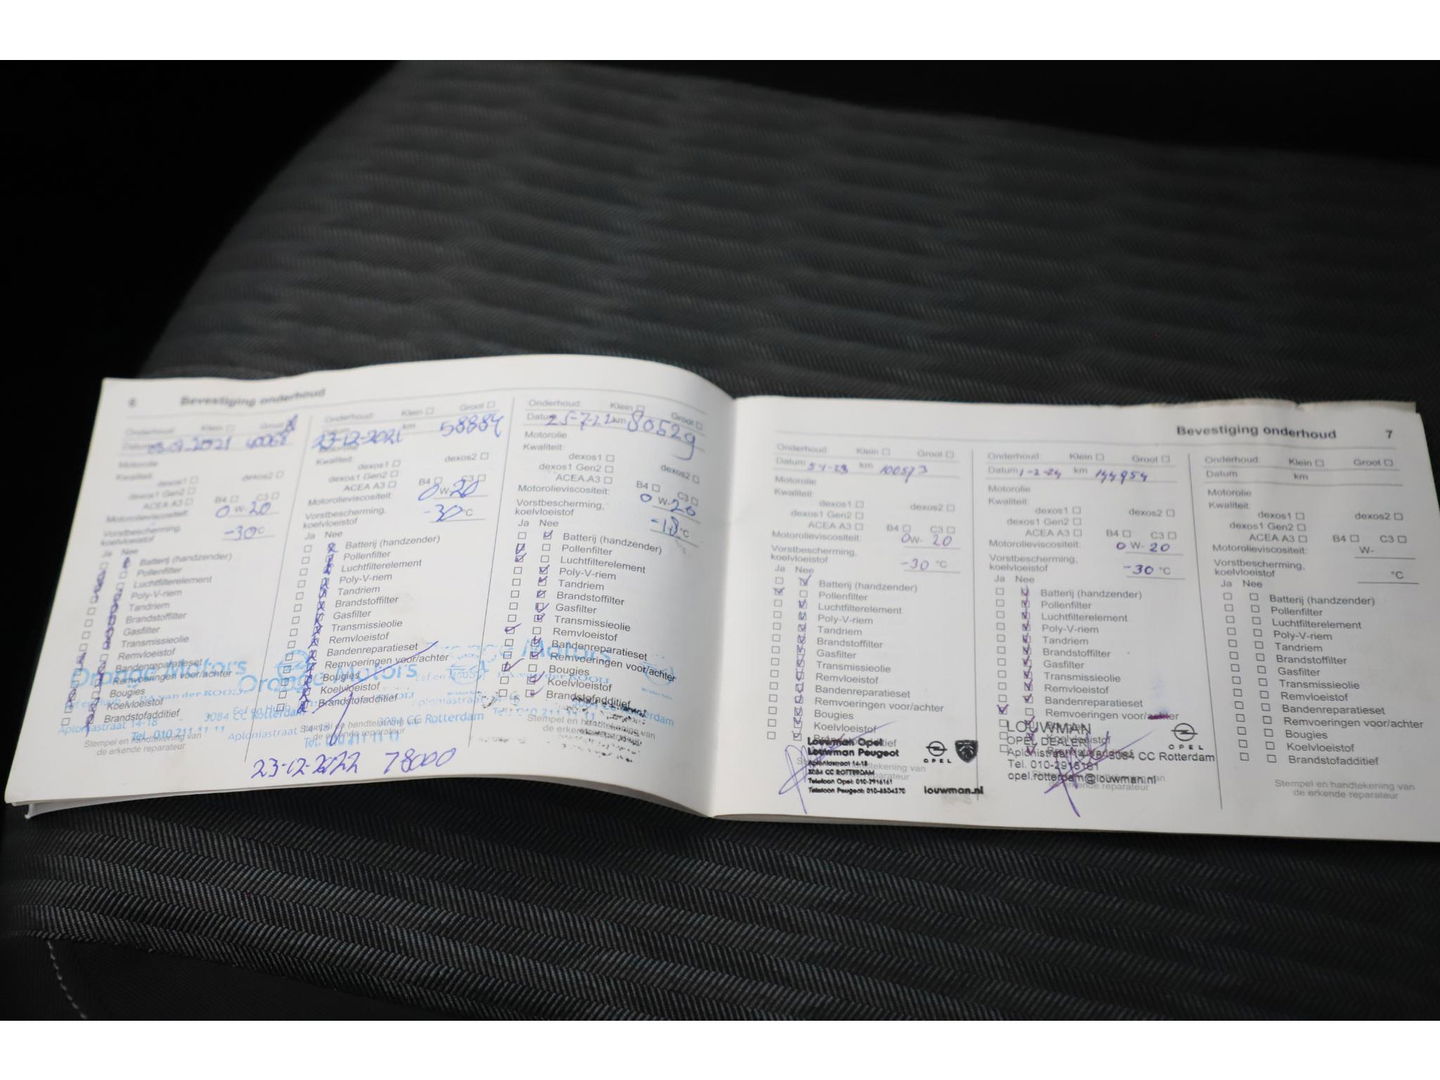 6 Bevestiging onderhoud
Onderhoud: Klein ☐ Groot
Motorolie
Kwaliteit: dexos2 ☐
dexos1 ☐
dexos1 Gen2 ☐
ACEA A3 ☐ B4 ☐ C3 ☐
Motorolieviscositeit: 0 W-20
Vorstbescherming,
koelvloeistof -30°C
Ja Nee
Batterij (handzender)
Pollenfilter
Luchtfilterelement
Poly-V-riem
Tandriem
Brandstoffilter
Gasfilter
Transmissieolie
Remvloeistof
Bandenreparatieset
Remvoeringen voor/achter
Bougies
Koelvloeistof
Brandstofadditief
Stempel en handtekening van
de erkende reparateur
3084 CC Rotterdam
Tel. 010 211 11 11
Onderhoud: Klein ☐ Groot ☐
23-12-2021 km 58884
Kwaliteit: dexos2 ☐
dexos1 ☐
dexos1 Gen2 ☐
ACEA A3 ☐ B4 ☐ C3 ☐
Motorolieviscositeit: 0 W-20
Vorstbescherming,
koelvloeistof -30°C
Ja Nee
Batterij (handzender)
Pollenfilter
Luchtfilterelement
Poly-V-riem
Tandriem
Brandstoffilter
Gasfilter
Transmissieolie
Remvloeistof
Bandenreparatieset
Remvoeringen voor/achter
Bougies
Koelvloeistof
Brandstofadditief
Aploniastraat 14-18
3084 CC Rotterdam
23-12-2022 78000
Onderhoud: Klein ☐ Groot ☐
Datum 25-7-22 km 80529
Motorolie
Kwaliteit: dexos2 ☐
dexos1 ☐
dexos1 Gen2 ☐
ACEA A3 ☐ B4 ☐ C3 ☐
Motorolieviscositeit: 0 W-20
Vorstbescherming,
koelvloeistof -18°C
Ja Nee
Batterij (handzender)
Pollenfilter
Luchtfilterelement
Poly-V-riem
Tandriem
Brandstoffilter
Gasfilter
Transmissieolie
Remvloeistof
Bandenreparatieset
Remvoeringen voor/achter
Bougies
Koelvloeistof
Brandstofadditief
Stempel en handtekening van
de erkende reparateur
Bevestiging onderhoud 7
Onderhoud: Klein ☐ Groot ☐
Datum 5-1-23 km
Motorolie
Kwaliteit: dexos2 ☐
dexos1 ☐
dexos1 Gen2 ☐
ACEA A3 ☐ B4 ☐ C3 ☐
Motorolieviscositeit: 0W- 20
Vorstbescherming,
koelvloeistof -30 °C
Ja Nee
Batterij (handzender)
Pollenfilter
Luchtfilterelement
Poly-V-riem
Tandriem
Brandstoffilter
Gasfilter
Transmissieolie
Remvloeistof
Bandenreparatieset
Remvoeringen voor/achter
Bougies
Koelvloeistof
Louwman Opel
Louwman Peugeot
Aploniastraat 14-18
3084 CC ROTTERDAM
Telefoon Opel: 010-2916161
Telefoon Peugeot: 010-4804270
OPEL
louwman.nl
Onderhoud: Klein ☐ Groot ☐
Datum 1-2-24 km 144954
Motorolie
Kwaliteit: dexos2 ☐
dexos1 ☐
dexos1 Gen2 ☐
ACEA A3 ☐ B4 ☐ C3 ☐
Motorolieviscositeit: 0 W- 20
Vorstbescherming,
koelvloeistof -30 °C
Ja Nee
Batterij (handzender)
Pollenfilter
Luchtfilterelement
Poly-V-riem
Tandriem
Brandstoffilter
Gasfilter
Transmissieolie
Remvloeistof
Bandenreparatieset
Remvoeringen voor/achter
LOUWMAN
OPEL DEALER
Aploniastraat 14-18/3084 CC Rotterdam
Tel. 010-2916161
opel.rotterdam@louwman.nl
OPEL
Onderhoud: Klein ☐ Groot ☐
Datum km
Motorolie
Kwaliteit: dexos2 ☐
dexos1 ☐
dexos1 Gen2 ☐
ACEA A3 ☐ B4 ☐ C3 ☐
Motorolieviscositeit: W-
Vorstbescherming,
koelvloeistof °C
Ja Nee
☐ ☐ Batterij (handzender)
☐ ☐ Pollenfilter
☐ ☐ Luchtfilterelement
☐ ☐ Poly-V-riem
☐ ☐ Tandriem
☐ ☐ Brandstoffilter
☐ ☐ Gasfilter
☐ ☐ Transmissieolie
☐ ☐ Remvloeistof
☐ ☐ Bandenreparatieset
☐ ☐ Remvoeringen voor/achter
☐ ☐ Bougies
☐ ☐ Koelvloeistof
☐ ☐ Brandstofadditief
Stempel en handtekening van
de erkende reparateur